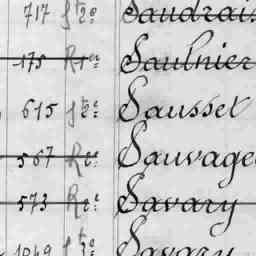 717 St 2e Saudrais
175 R 1er Saulnier
615 St 2e Sausset
567 Re: Sauvage
573 Re: Savary
1049 St 3e Savary